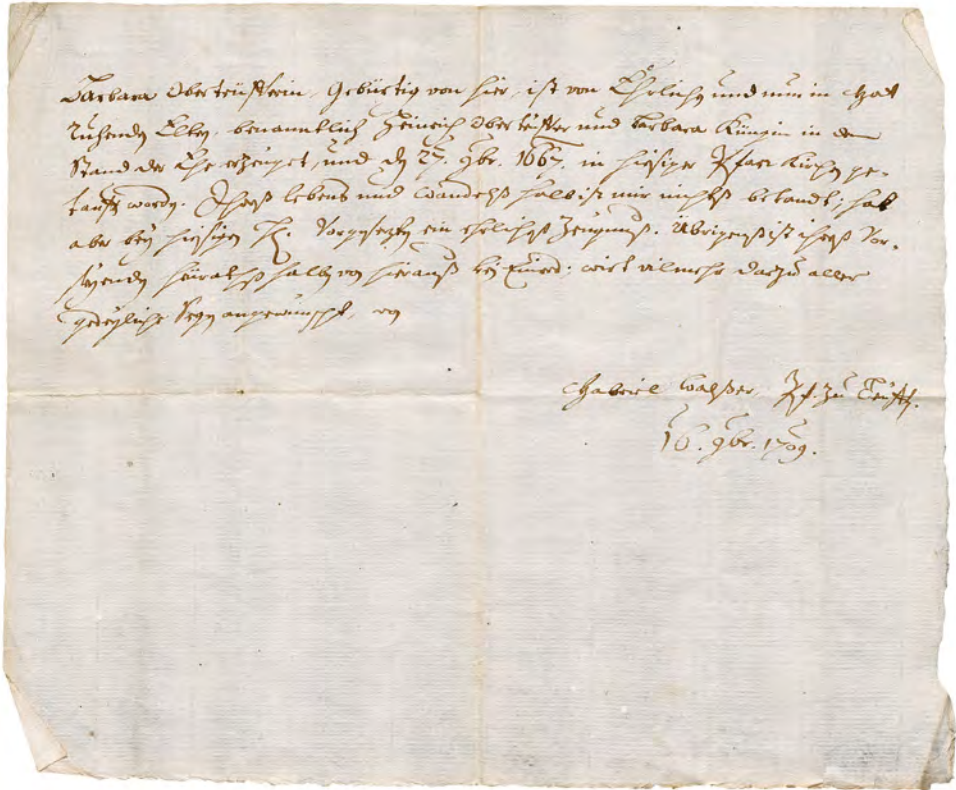 Barbara Oberteüfferin, Gebürtig von hier, ist von Ehrlichen und nun in Gott
Ruhenden Elteren, benanntlich Heinrich Oberteüffer und Barbara Küngin in dem
Stand der Ehe erzeuget, und den 27. 9br. 1667. in hiesiger Pfarr Kirchen ge-
taufft worden. Ihres lebens und wandels halb ist mir nichts bekandt; hat
aber bey hiesigen H. Vorgesezten ein ehrliches Zeügnuß. Übrigens ist ihres Vor-
heyraths halben von hierauß kein; wirt vilmehr darzu aller
gedeyliche Segen angewünscht, von
Gabriel Walßer, Pf. zu Teüffen.
16. 9br. 1709.